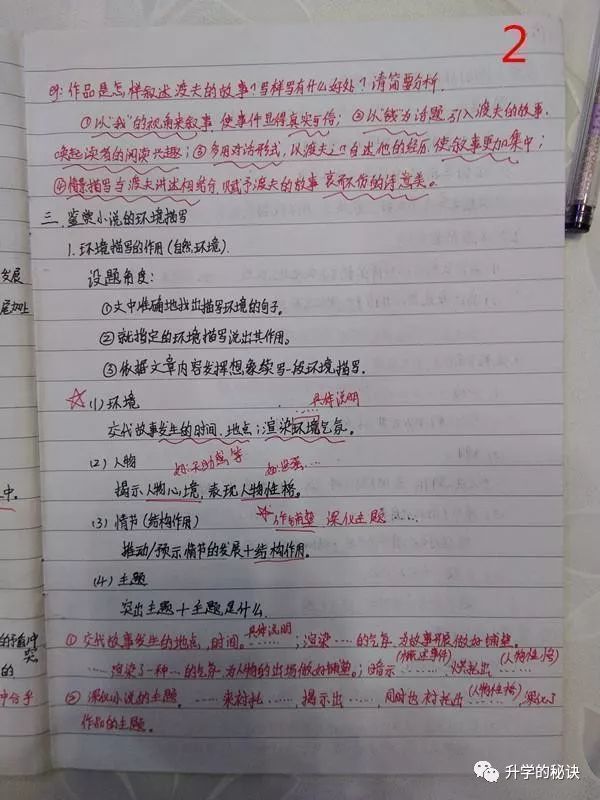 2
eg: 作品是怎样叙述渡夫的故事?这样写有什么好处?请简要分析.
①以“我”的视角来叙事,使事件显得真实可信;②以“钱”为话题,引入渡夫的故事,
唤起读者的阅读兴趣;③多用对话形式,以渡夫口自述他的经历,使叙事更加集中;
④情景描写与渡夫讲述相结合,赋予渡夫的故事哀而不伤的诗意美。
三、鉴赏小说的环境描写
1.环境描写的作用(自然环境).
设题角度:
①文中准确地找出描写环境的句子。
②就指定的环境描写说出其作用。
③依据文章内容发挥想象续写一段环境描写.
(1)环境 具体说明
交代故事发生的时间、地点;渲染环境气氛。
(2)人物
揭示人物心境,表现人物性格。
(3)情节(结构作用) 作铺垫 深化主题……
推动/预示情节的发展+结构作用。
(4)主题
突出主题+主题是什么.
①交代故事发生的地点,时间。具体说明……;渲染……的气氛 为故事开展做好铺垫。
……渲染了一种…的气氛 为人物的出场做好铺垫。;暗示(概述事件)……,烘托出(人物性格)……
②深化小说的主题,……来衬托……,揭示出……,同时也衬托出(人物性格)……,深化了
作品的主题。
发展
中.
突.
的
升学的秘诀